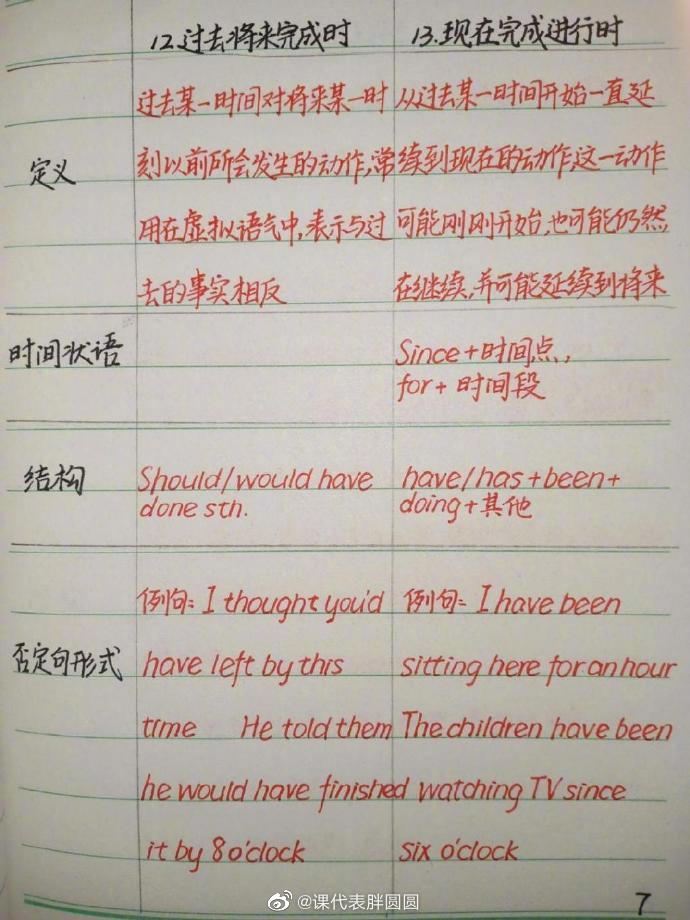 12.过去将来完成时
13.现在完成进行时
定义
过去某一时间对将来某一时
刻以前所会发生的动作,常
用在虚拟语气中,表示与过
去的事实相反
从过去某一时间开始一直延
续到现在的动作,这一动作
可能刚刚开始,也可能仍然
在继续,并可能延续到将来
时间状语
Since+时间点,
for+时间段
结构
Should/would have
done sth.
have/has+been+
doing+其他
否定句形式
例句: I thought you'd
have left by this
time He told them
he would have finished
it by 8 o'clock
例句: I have been
sitting here for an hour
The children have been
watching TV since
six o'clock
7
@课代表胖圆圆